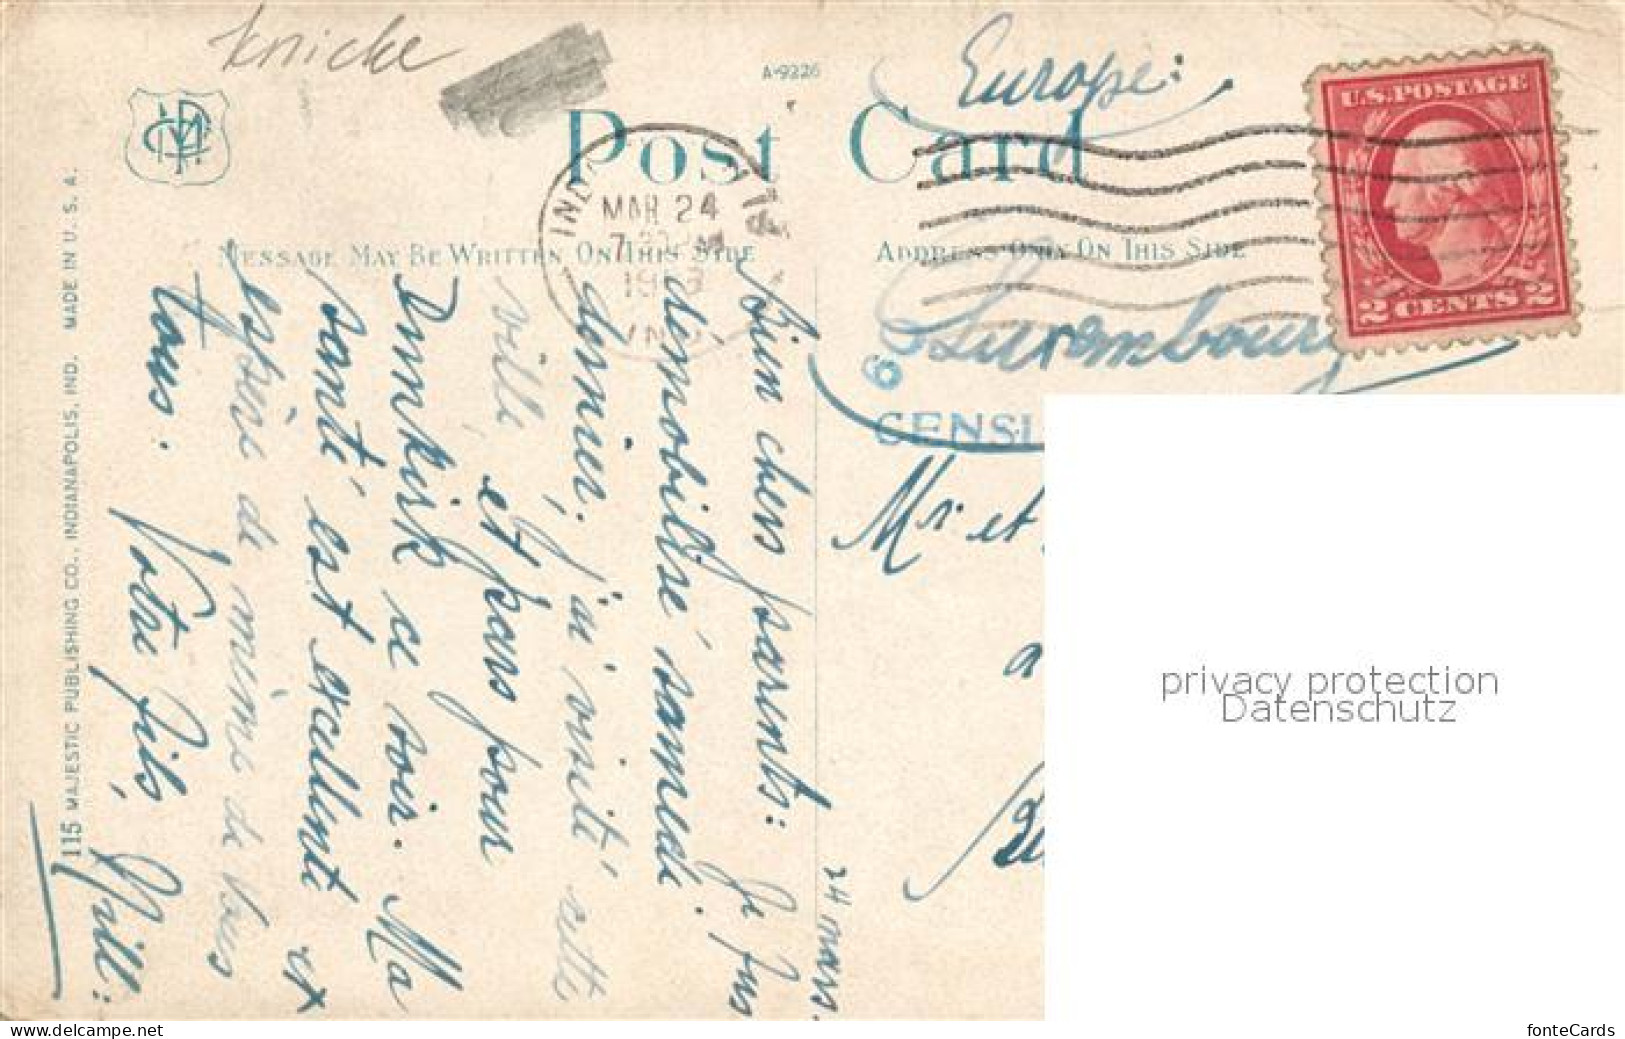 knicke
A-9226
Post Card
Europe:
U.S. POSTAGE
2 CENTS 2
MAR 24
IND.
MESSAGE MAY BE WRITTEN ON THIS SIDE
ADDRESS ONLY ON THIS SIDE
Luxembourg
6
CENS
Mr et
a
privacy protection
Datenschutz
24 mars.
Bien chers parents: Je fus
démobilisé samedi
dernier. j'ai visité cette
ville et pars pour
ce soir. Ma
santé est excellente et
espère de même de vous
tous. Votre fils,
115 MAJESTIC PUBLISHING CO., INDIANAPOLIS, IND. MADE IN U. S. A.
fonteCards